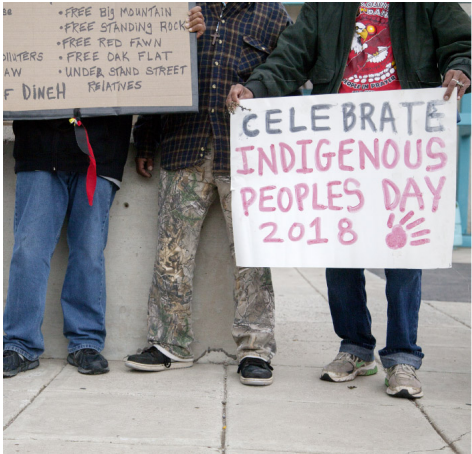 • FREE BIG MOUNTAIN
• FREE STANDING ROCK
• FREE RED FAWN
• FREE OAK FLAT
• UNDER STAND STREET
RELATIVES
OF DINEH
CELEBRATE
INDIGENOUS
PEOPLES DAY
2018